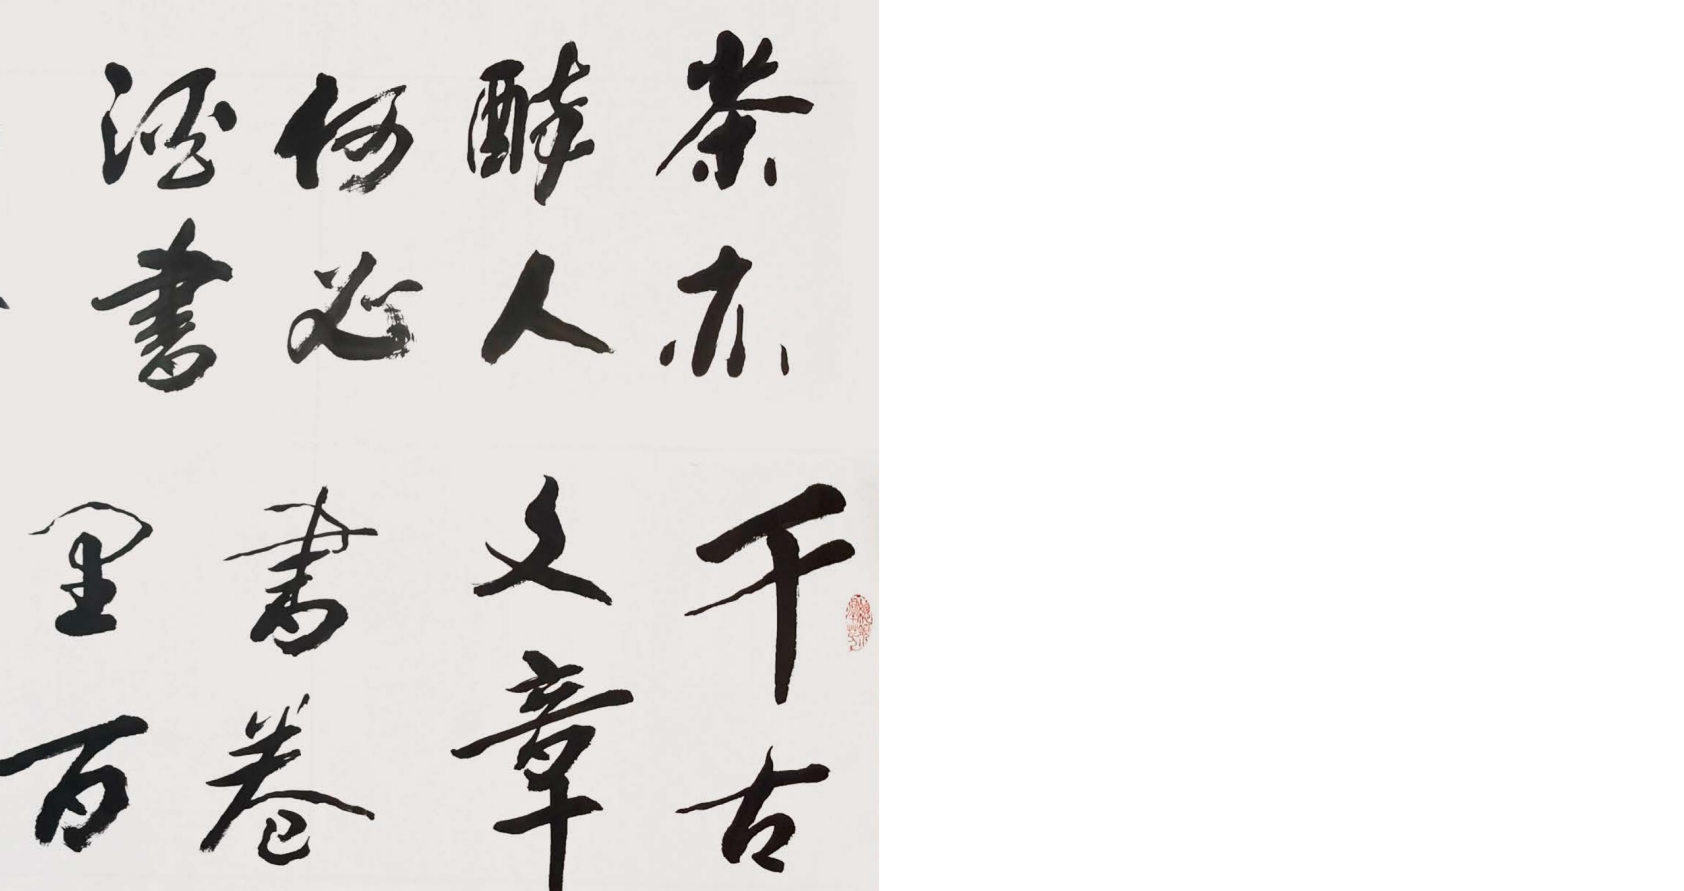 茶亦
醉人
何必
酒書
千古
文章
書卷
里百